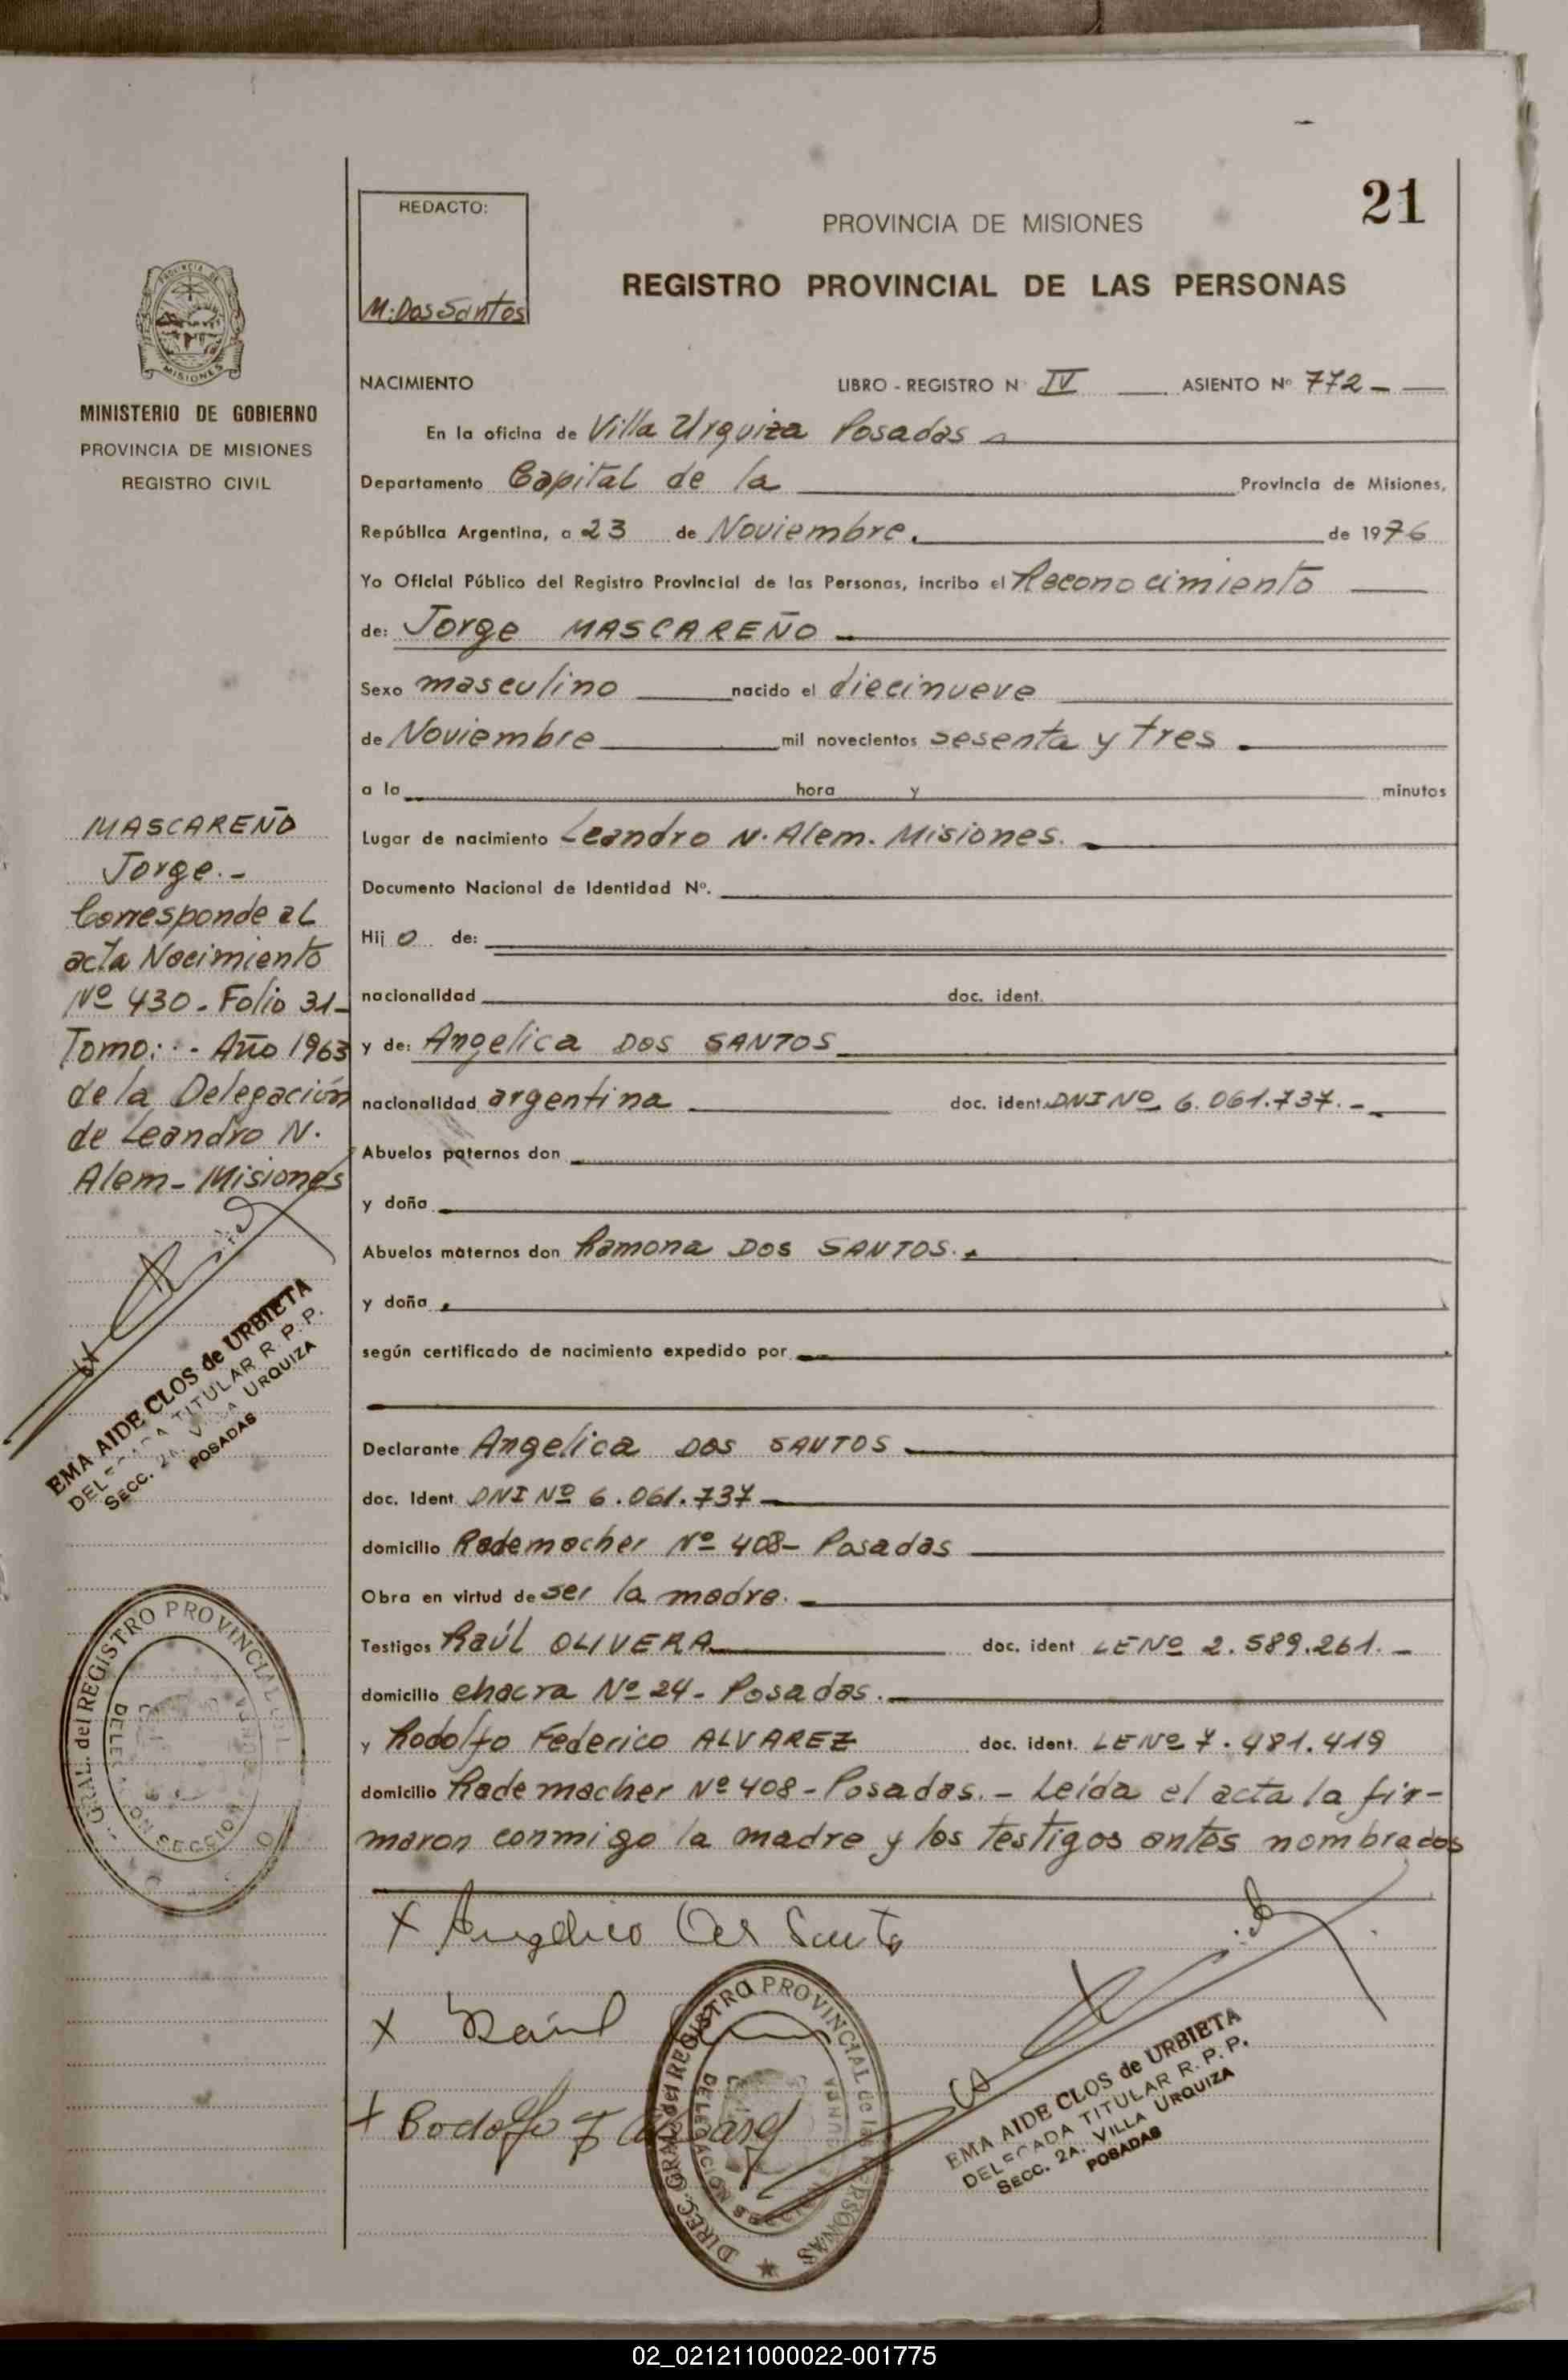 21
REDACTO:
M. Dos Santos
PROVINCIA DE MISIONES
REGISTRO PROVINCIAL DE LAS PERSONAS
MISIONES
MINISTERIO DE GOBIERNO
PROVINCIA DE MISIONES
REGISTRO CIVIL
NACIMIENTO LIBRO - REGISTRO Nº IV ASIENTO Nº 772 -
En la oficina de Villa Urquiza Posadas
Departamento Capital de la Provincia de Misiones,
República Argentina, a 23 de Noviembre. de 1976
Yo Oficial Público del Registro Provincial de las Personas, incribo el Reconocimiento
de: Jorge MASCAREÑO
Sexo masculino nacido el diecinueve
de Noviembre mil novecientos sesenta y tres
a la hora y minutos
Lugar de nacimiento Leandro N. Alem. Misiones.
Documento Nacional de Identidad Nº.
Hij o de:
nacionalidad doc. ident.
y de: Angelica DOS SANTOS
nacionalidad argentina doc. ident. DNI Nº 6.061.737.-
Abuelos paternos don
y doña
Abuelos maternos don Ramona DOS SANTOS.
y doña
según certificado de nacimiento expedido por
Declarante Angelica DOS SANTOS
doc. Ident DNI Nº 6.061.737
domicilio Rademacher Nº 408- Posadas
Obra en virtud de ser la madre.
Testigos Raúl OLIVERA doc. ident LE Nº 2.589.261. -
domicilio chacra Nº 24- Posadas.
y Rodolfo Federico ALVAREZ doc. ident. LE Nº 7.481.419
domicilio Rademacher Nº 408 - Posadas. - Leída el acta la fir-
maron conmigo la madre y los testigos antes nombrados
MASCAREÑO
Jorge.-
Corresponde al
acta Nacimiento
Nº 430 - Folio 31-
Tomo: - Año 1963
de la Delegación
de Leandro N.
Alem - Misiones
EMA AIDE CLOS de URBIETA
DELEGADA TITULAR R. P. P.
SECC. 2A. VILLA URQUIZA
POSADAS
GRAL. del REGISTRO PROVINCIAL
SECCION
X Angelica Dos Santos
X Raúl
X Rodolfo F
DIREC. GRAL. del REGISTRO PROVINCIAL de las PERSONAS
DELEGACION SECCION
EMA AIDE CLOS de URBIETA
DELEGADA TITULAR R. P. P.
SECC. 2A. VILLA URQUIZA
POSADAS
02_021211000022-001775